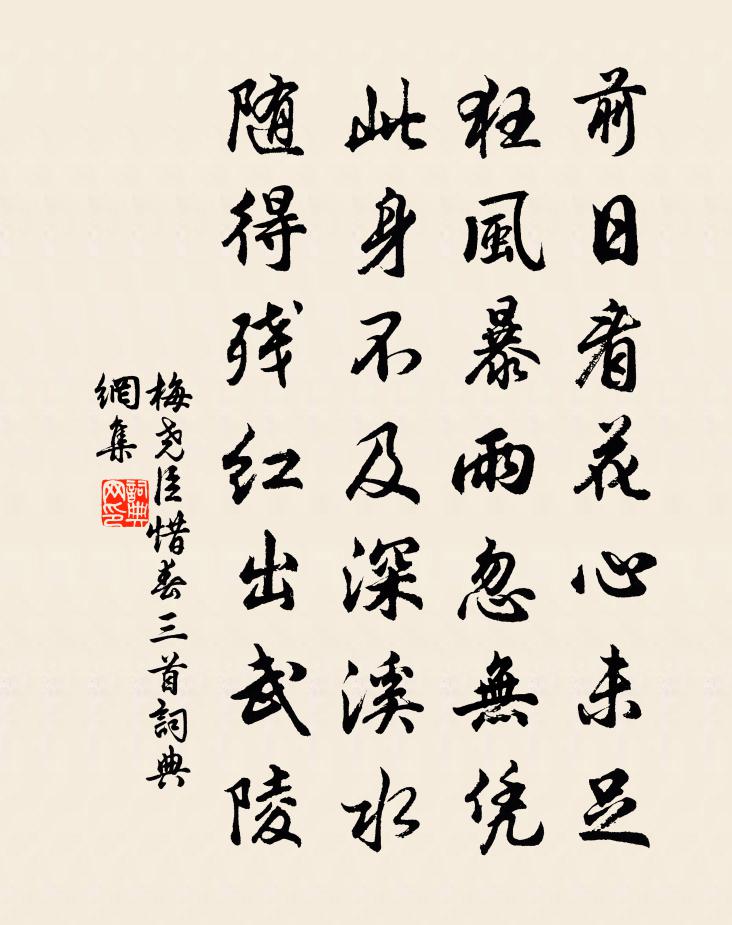 前日看花心未足
狂風暴雨忽無凭
此身不及深溪水
随得残红出武陵
梅尧臣惜春三首詞典
網集
詞典
网印